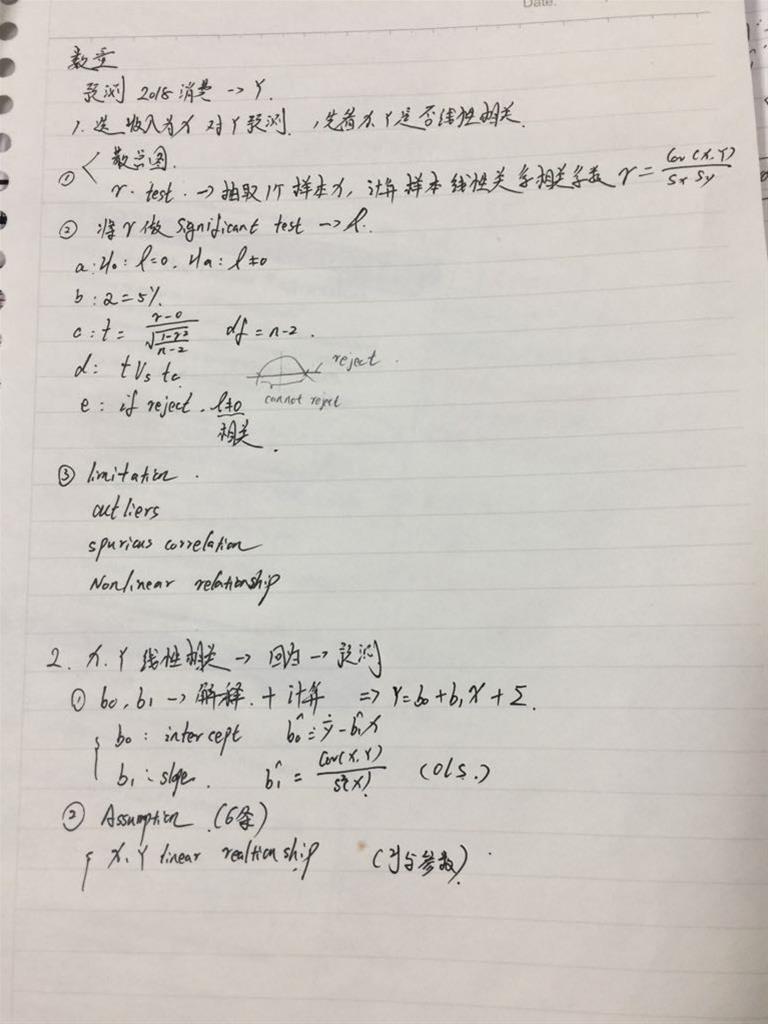 Date:
数量
预测 2018 消费 → Y.
1. 选收入为 X 对 Y 预测. 先看 X Y 是否线性相关.
① { 散点图.
r. test. → 抽取1个样本, 计算样本线性关系相关系数 r = Cov(X,Y) / Sx Sy
② 将 r 做 significant test → ρ.
a: H0: ρ=0. Ha: ρ≠0
b: α=5%.
c: t = (r-0) / √((1-r²)/(n-2)) df = n-2.
d: t Vs tc reject.
cannot reject
e: if reject. ρ≠0
相关.
③ limitation.
outliers
spurious correlation
Nonlinear relationship
2. X. Y 线性相关 → 回归 → 预测
① b0, b1 → 解释 + 计算 ⇒ Y = b0 + b1X + Σ.
{ b0: intercept b̂0 = ȳ - b̂1X
b1: slope. b̂1 = Cov(X,Y) / s²(X) (OLS.)
② Assumption. (6条)
{ X, Y linear realtionship (参数).